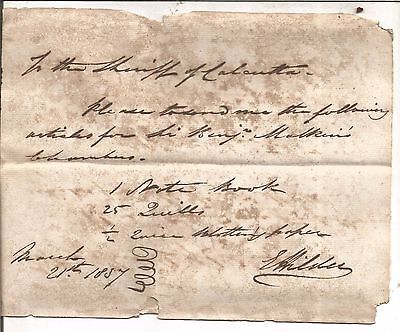 To the Sheriff of Calcutta.
Please to send me the following
articles for Sir Benj. Malkin's
Chambers.
1 Note Book
25 Quills
½ Quire Blotting paper
March
21st 1837